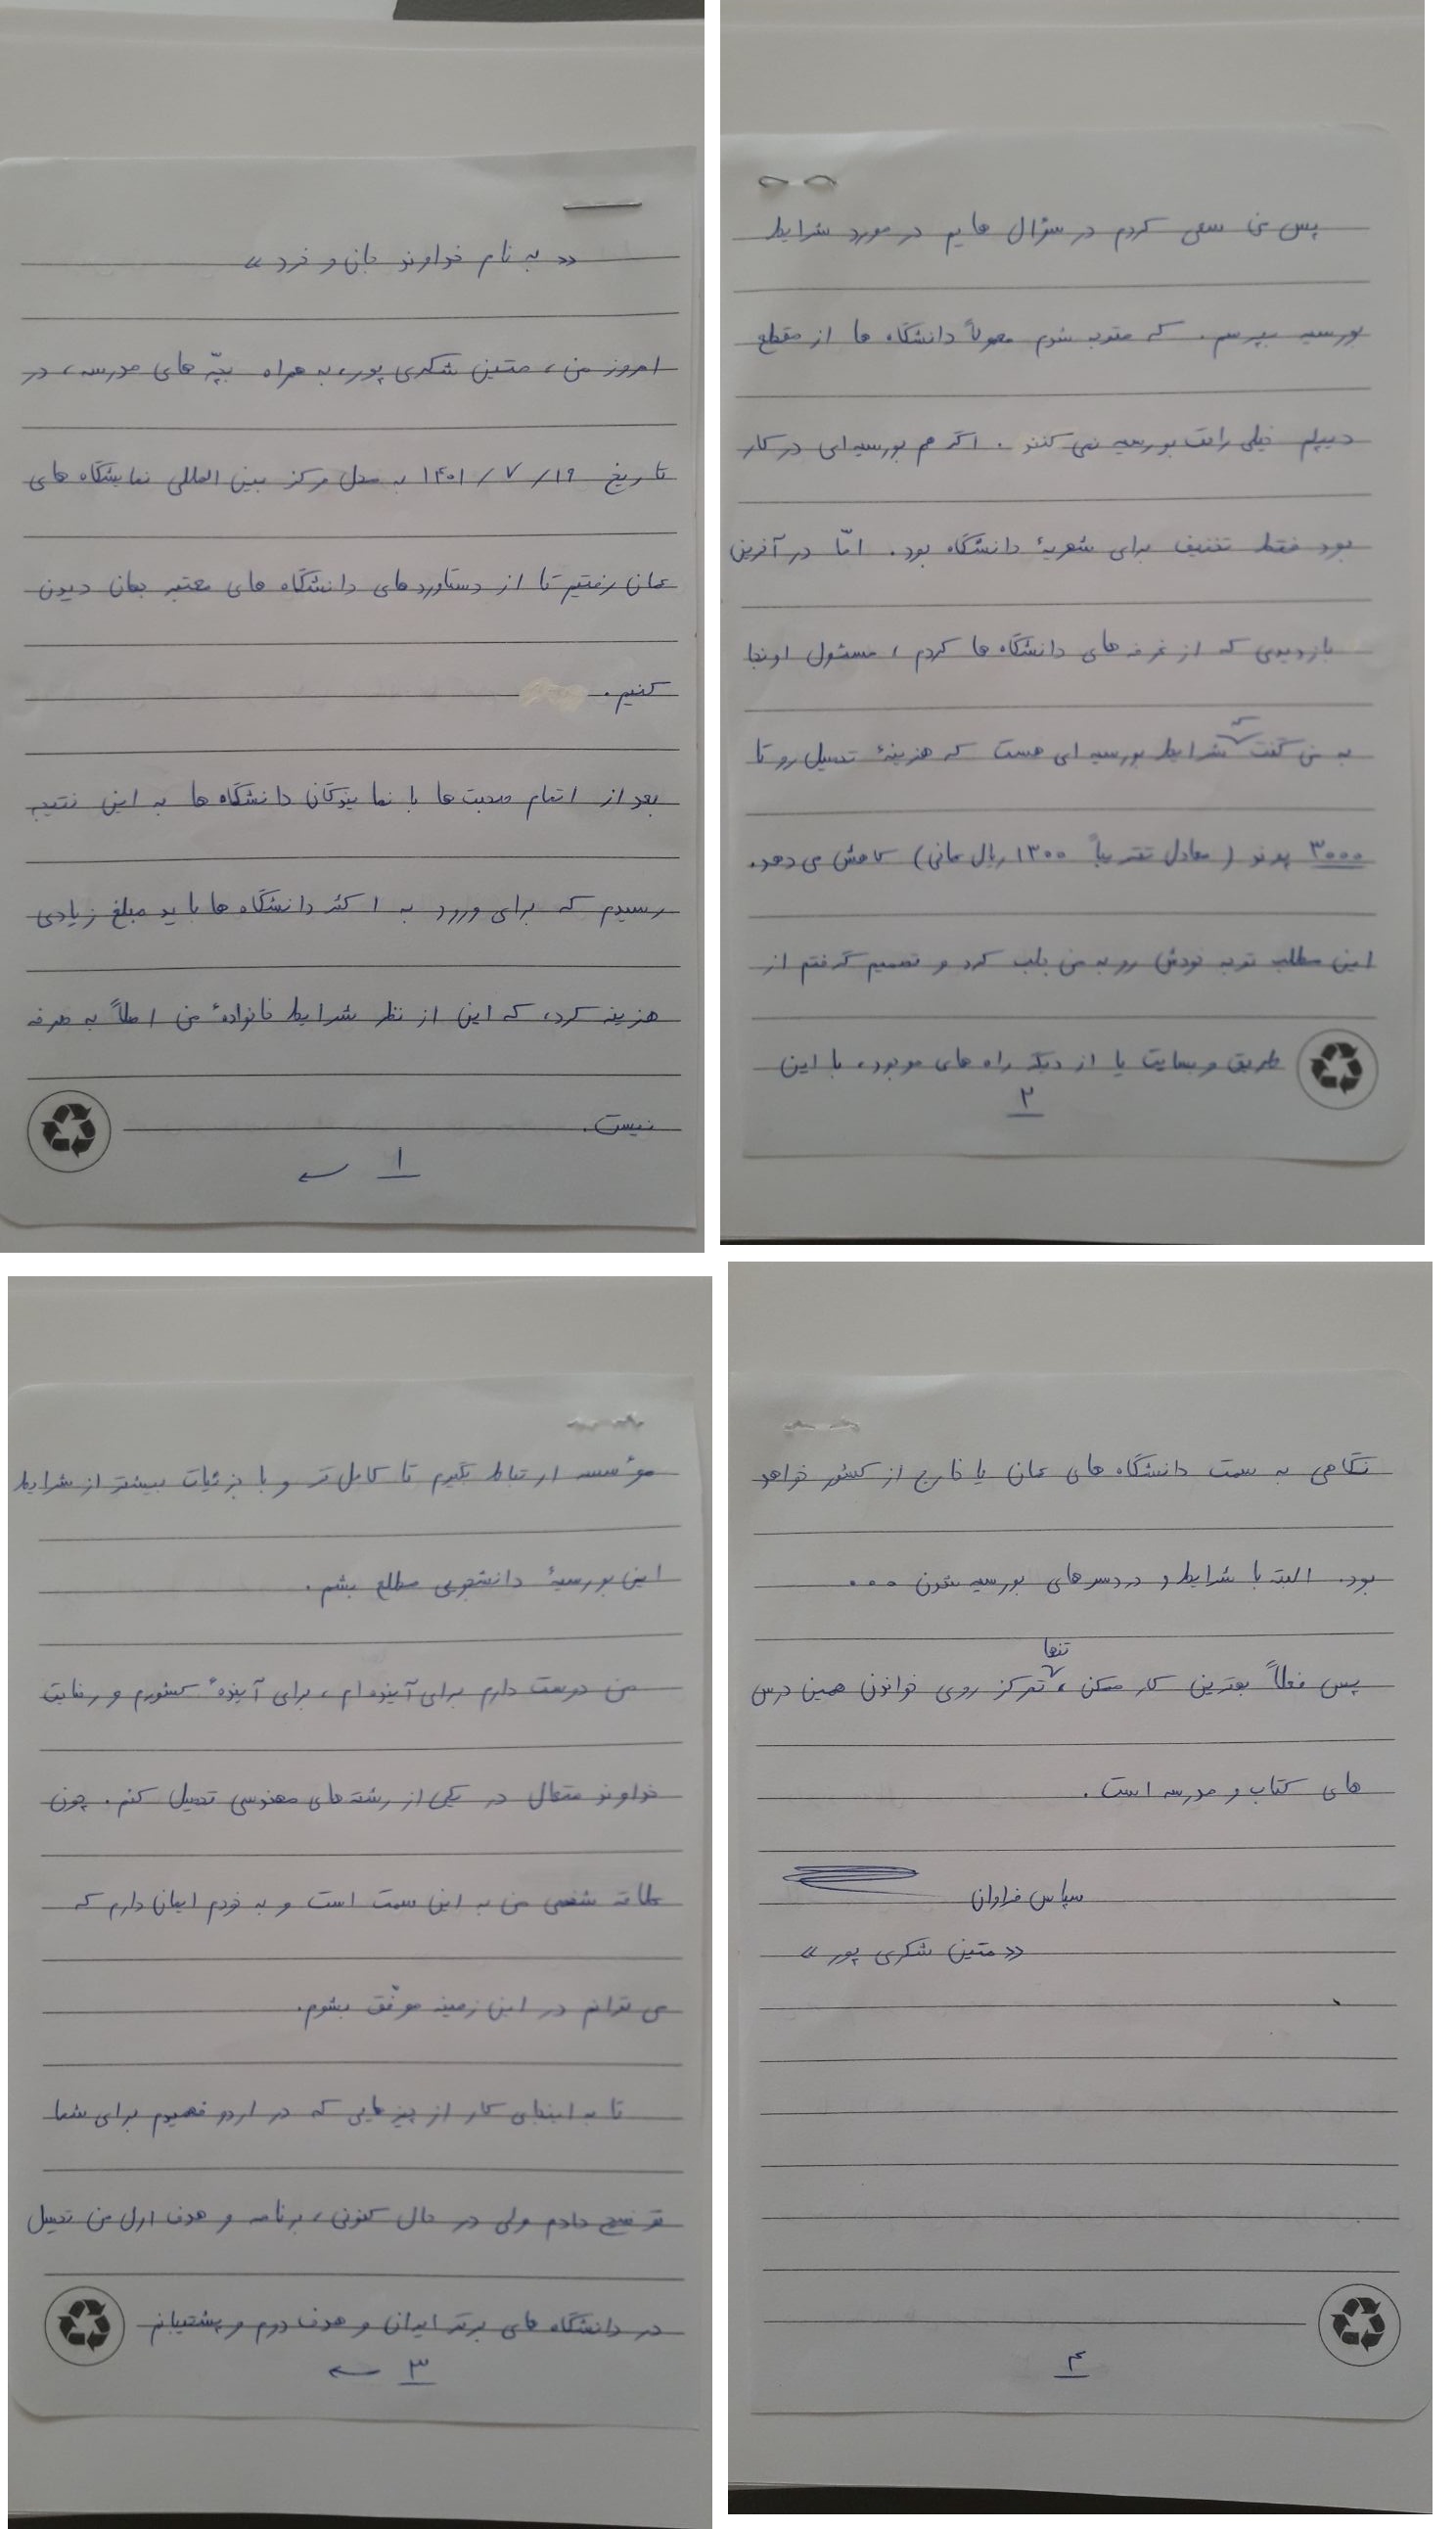 « به نام خداوند جان و خرد »
امروز من ، متین شکری پور، به همراه بچّه های مدرسه ، در
تاریخ ۱۴۰۱ / ۷ / ۱۹ به محل مرکز بین المللی نمایشگاه های
عمان رفتیم تا از دستاوردهای دانشگاه های معتبر جهان دیدن
کنیم .
بعد از اتمام صحبت ها با نمایندگان دانشگاه ها به این نتیجه
رسیدم که برای ورود به اکثر دانشگاه ها باید مبلغ زیادی
هزینه کرد، که این از نظر شرایط خانوادهٔ من اصلاً به صرفه
نیست .
۱
پس من سعی کردم در سؤال هایم در مورد شرایط
بورسیه بپرسم . که متوجه شدم معمولاً دانشگاه ها از مقطع
دیپلم خیلی راحت بورسیه نمی کنند . اگر هم بورسیه ای در کار
بود فقط تخفیف برای شهریهٔ دانشگاه بود . امّا در آخرین
بازدیدی که از غرفه های دانشگاه ها کردم ، مسئول اونجا
به من گفت که شرایط بورسیه ای هست که هزینهٔ تحصیل رو تا
۳۰۰۰ پوند ( معادل تقریباً ۱۳۰۰ ریال عمانی ) کاهش می دهد .
این مطلب توجه خودش رو به من جلب کرد و تصمیم گرفتم از
طریق وبسایت یا از دیگر راه های موجود، با این
۲
مؤسسه ارتباط بگیرم تا کامل تر و با جزئیات بیشتر از شرایط
این بورسیهٔ دانشجویی مطلع بشم .
من دوست دارم برای آینده ام ، برای آیندهٔ کشورم و رضایت
خداوند متعال در یکی از رشته های مهندسی تحصیل کنم . چون
علاقه شخصی من به این سمت است و به خودم ایمان دارم که
می توانم در این زمینه موفّق بشوم .
تا به اینجای کار از چیزهایی که در اردو فهمیدم برای شما
توضیح دادم ولی در حال کنونی ، برنامه و هدف اول من تحصیل
در دانشگاه های برتر ایران و هدف دوم و پشتیبانم
۳
نگاهی به سمت دانشگاه های عمان یا خارج از کشور خواهد
بود . البته با شرایط و دردسرهای بورسیه شدن ...
پس فعلاً بهترین کار ممکن ، تنها تمرکز روی خواندن همین درس
های کتاب و مدرسه است .
سپاس فراوان
« متین شکری پور »
۴